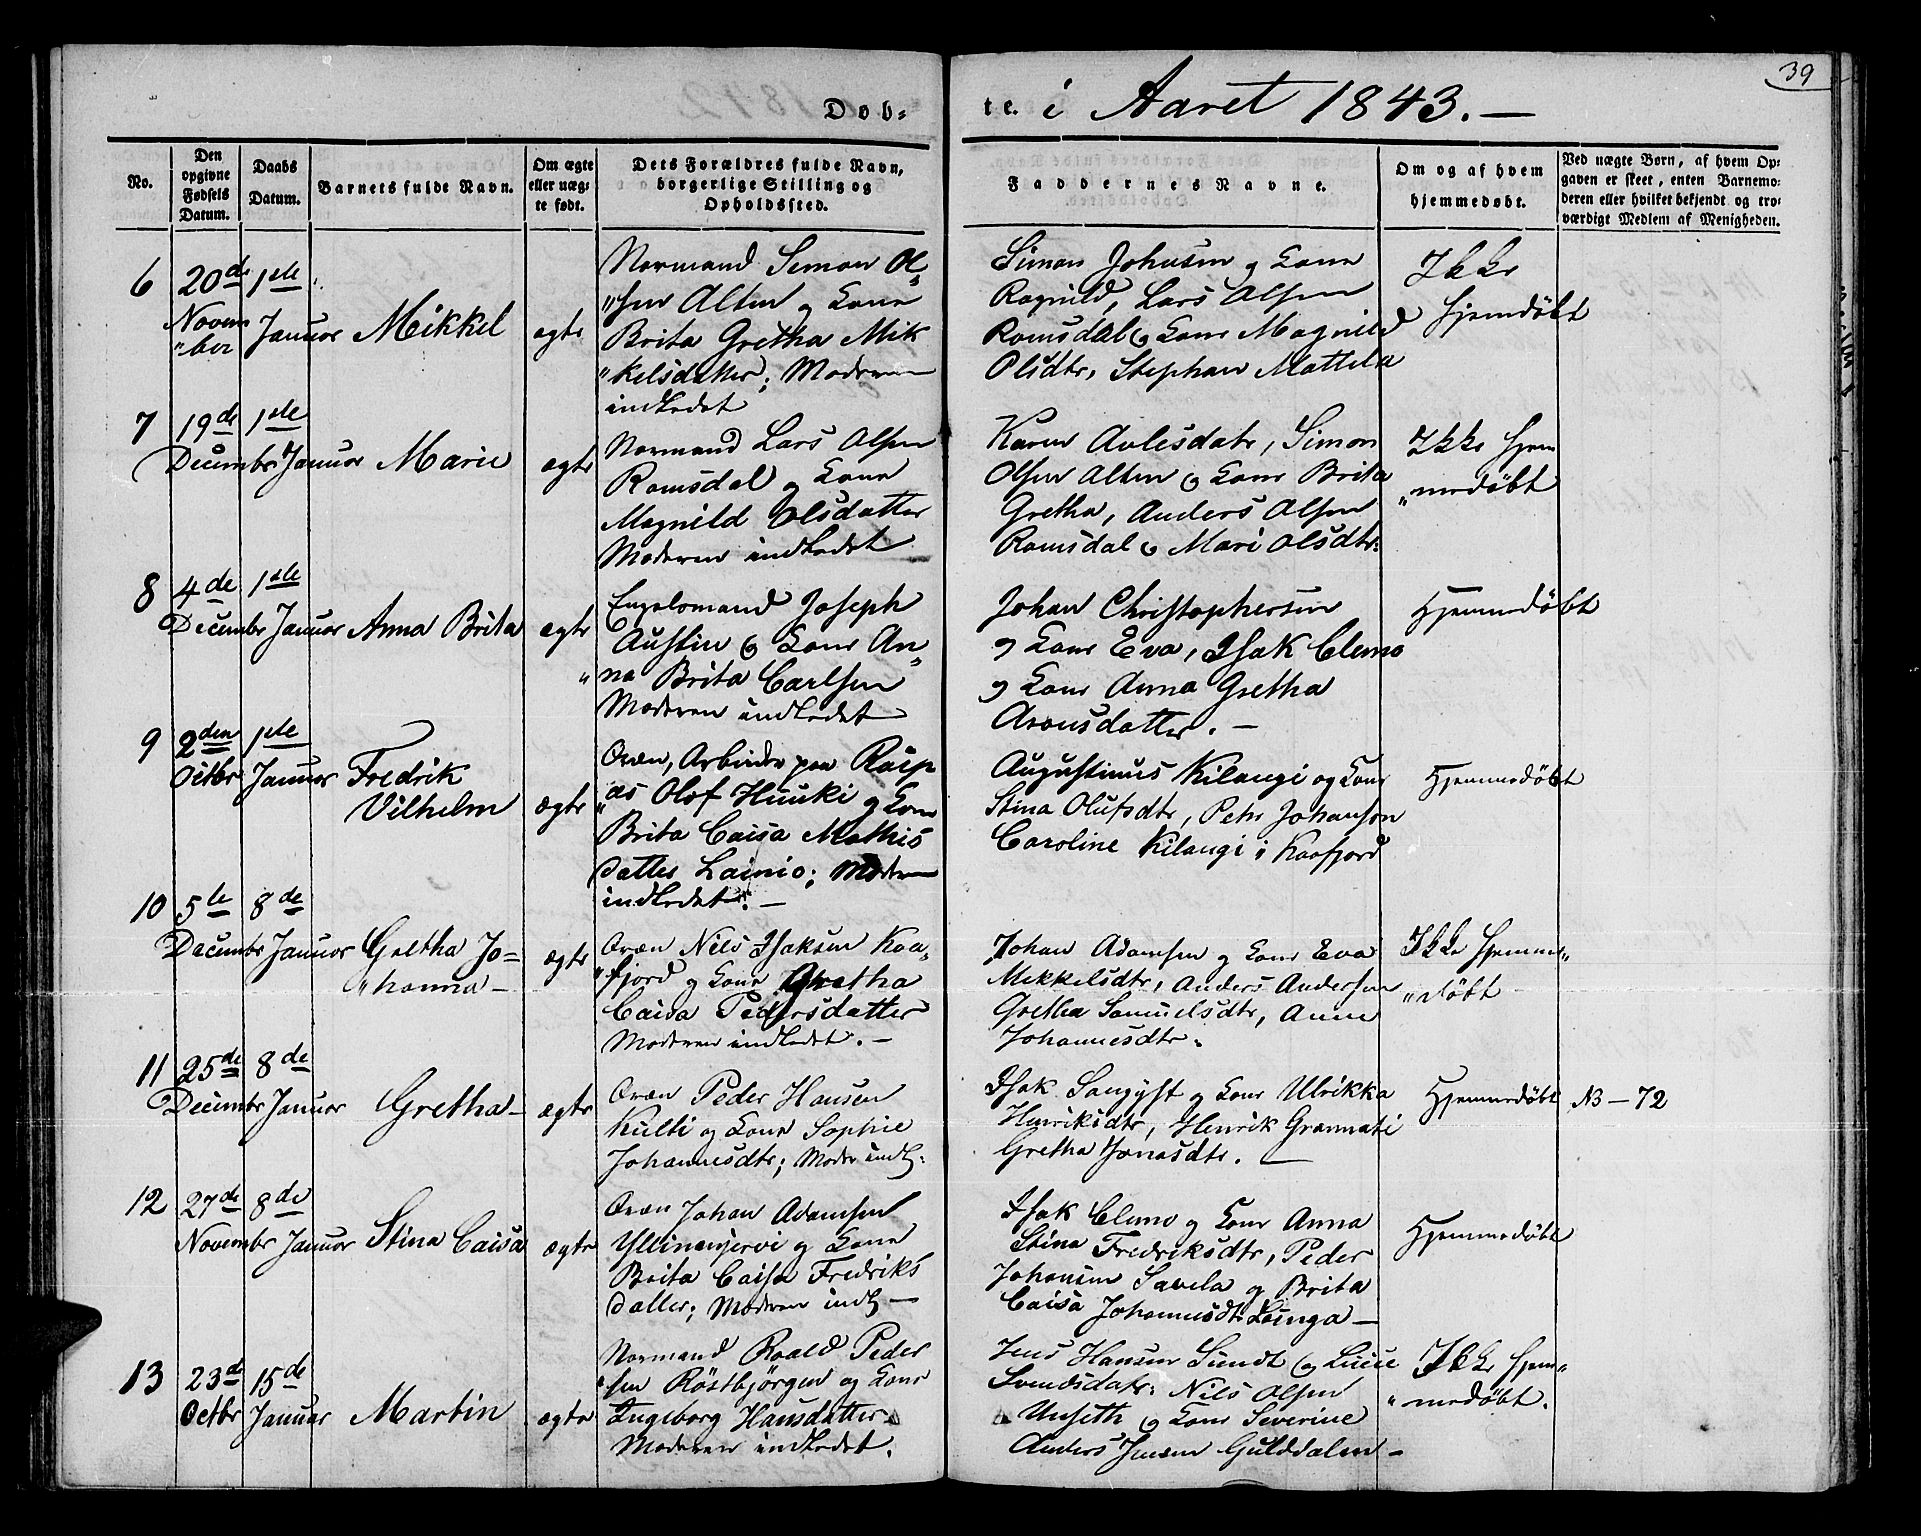 39
Døb-
te. i Aaret 1843. —
No.
Den
opgivne
Fødsels
Datum.
Daabs
Datum.
Barnets fulde Navn.
Om ægte
eller uæg-
te født.
Dets Forældres fulde Navn,
borgerlige Stilling og
Opholdssted.
Faddernes Navne.
Om og af hvem
hjemmedøbt.
Ved uægte Børn, af hvem Op-
gaven er skeet, enten Barnemo-
deren eller hvilket bekjendt og tro-
værdigt Medlem af Menigheden.
6
20de
Novem
"ber
1ste
Januar
Mikkel
ægte
Normand Simon Ol-
"sen Alten og Kone
Brita Gretha Mik
"kelsdatter; Moderen
indledet
Simon Johnsen og Kone
Ragnild, Lars Olsen
Romsdal og Kone Magnild
Olsdtr, Stephan Mattila
Ikke
hjemdøbt
7
19de
Decembr
1ste
Januar
Marie
ægte
Normand Lars Olsen
Romsdal og Kone
Magnild Olsdatter
Moderen indledet
Karen Avlesdatr, Simon
Olsen Alten og Kone Brita
Gretha, Anders Olsen
Romsdal og Mari Olsdtr.
Ikke hjem
"medøbt
8
4de
Decembr
1ste
Januar
Anna Brita
ægte
Engelsmand Joseph
Austin og Kone An-
"na Brita Carlsen
Moderen indledet
Johan Christophersen
og Kone Eva, Isak Clemo
og Kone Anna Gretha
Aronsdatter. —
Hjemmedøbt
9
2den
Octbr
1ste
Januar
Fredrik
Vilhelm
ægte
Qvæn, Arbeider paa Raip
"as Olof Huuki og Kone
Brita Caisa Mathis
datter Lainio; Moderen
indledet. —
Augustinus Kilangi og Kone
Stina Olufsdtr, Petr Johanson
Caroline Kilangi i Kaafjord
Hjemmedøbt
10
5te
Decembr
8de
Januar
Gretha Jo-
"hanna —
ægte
Qvæn Nils Isaksen Kaa-
"fjord og Kone Gretha
Caisa Pedersdatter
Moderen indledet. —
Johan Adamsen og Kone Eva
Mikkelsdtr, Anders Andersen
Gretha Samuelsdtr, Anne
Johannesdtr.
Ikke hjemme-
"døbt
11
25de
Decembr
8de
Januar
Gretha —
ægte
Qvæn Peder Hansen
Kulti og Kone Sophie
Johannesdtr; Moder indl:
Isak Sangyst og Kone Ulrikka
Henriksdtr, Henrik Grannati
Gretha Jonasdtr. —
Hjemmedøbt
NB — 72
12
27de
Novembr
8de
Januar
Stina Caisa
ægte
Qvæn Johan Adamsen
Yllinenjervi og Kone
Brita Caisa Fredriks
datter; Moderen indl —
Isak Clemo og Kone Anna
Stina Fredriksdtr, Peder
Johansen Savela og Brita
Caisa Johannesdtr Lainga —
Hjemmedøbt
13
23de
Octbr
15de
Januar
Martin
ægte
Normand Roald Peder
"sen Röstbjörgen og Kone
Ingeborg Hansdatter
Moderen indledet.
Jens Hansen Sundt og Lucie
Svendsdatr. Nils Olsen
Unseth og Kone Severine
Anders Jensen Gulddalen —
Ikke hjem-
"medøbt.